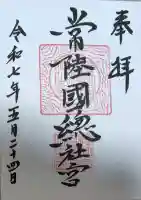 奉拝
常陸國總社宮
令和七年五月二十四日